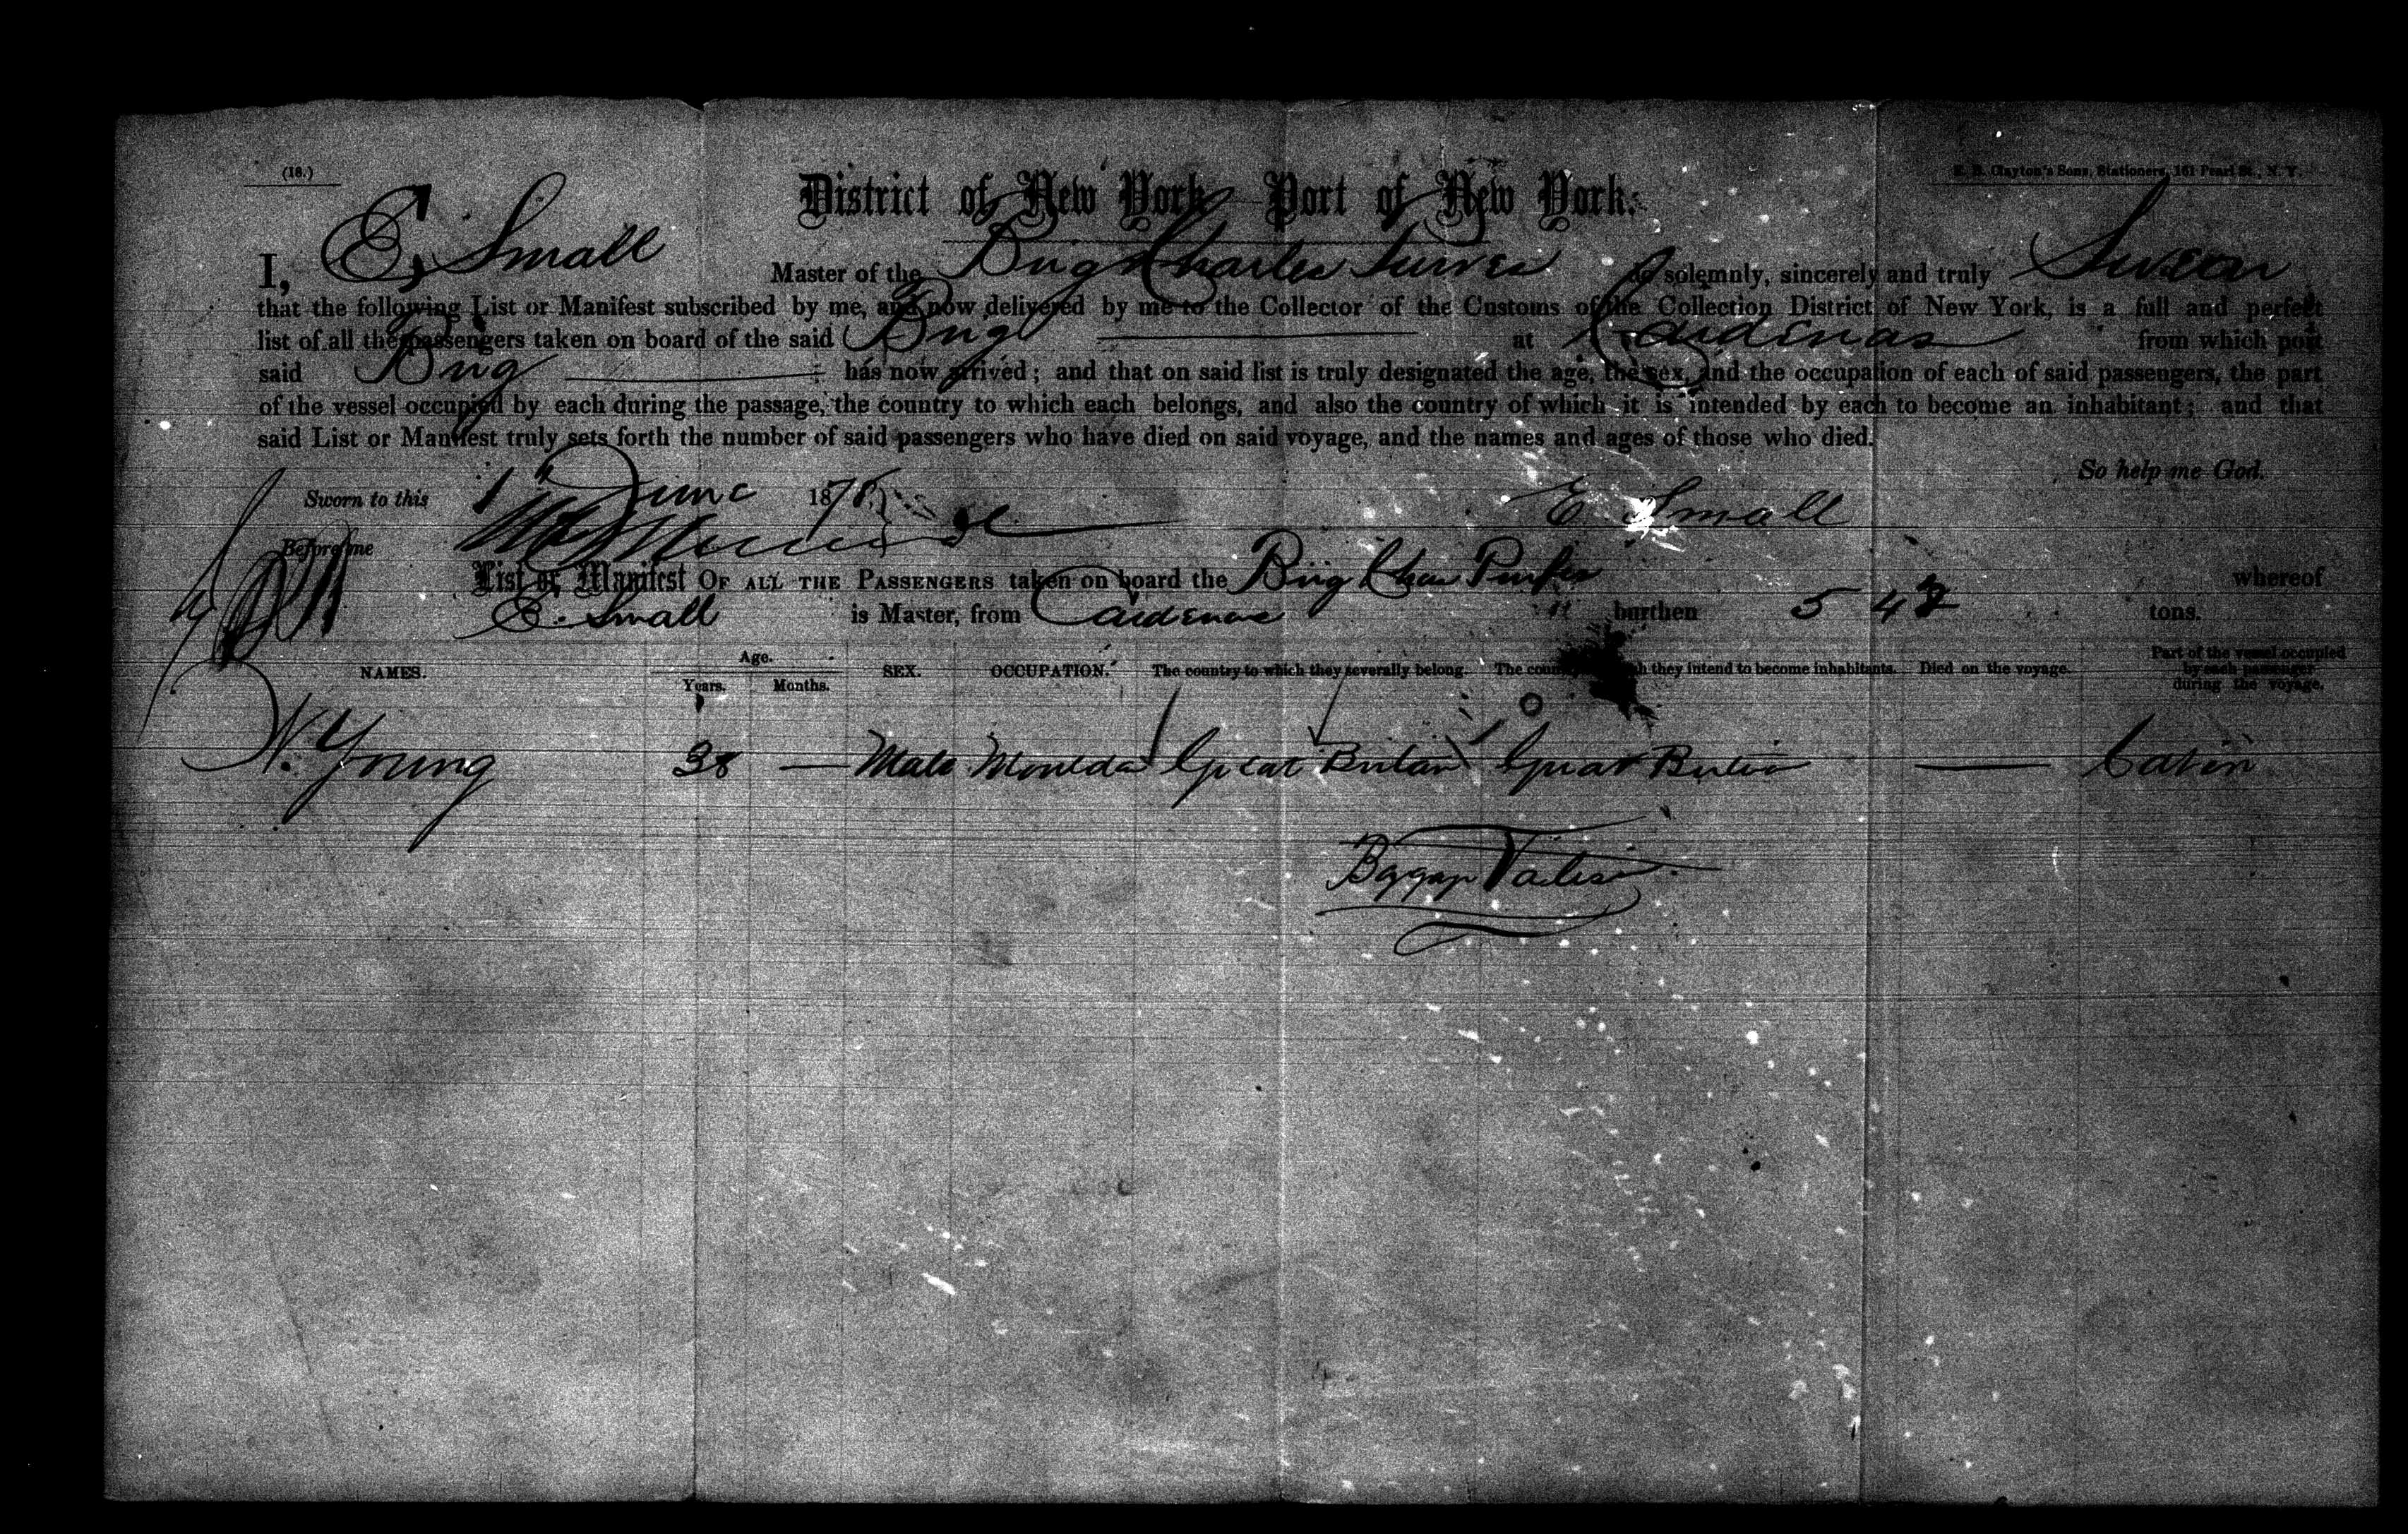 (18.)
E. B. Clayton's Sons, Stationers, 161 Pearl St., N. Y.
District of New York Port of New York.
I, E. Small Master of the Brig Charles do solemnly, sincerely and truly Swear
that the following List or Manifest subscribed by me, and now delivered by me to the Collector of the Customs of the Collection District of New York, is a full and perfect
list of all the passengers taken on board of the said Brig at Cardenas from which port
said Brig has now arrived; and that on said list is truly designated the age, the sex, and the occupation of each of said passengers, the part
of the vessel occupied by each during the passage, the country to which each belongs, and also the country of which it is intended by each to become an inhabitant; and that
said List or Manifest truly sets forth the number of said passengers who have died on said voyage, and the names and ages of those who died.
So help me God.
Sworn to this 1 June 187
E Small
Before me
List or Manifest OF ALL THE PASSENGERS taken on board the Brig Chas whereof
E. Small is Master, from Cardenas burthen 54 tons.
NAMES. Age. Years. Months. SEX. OCCUPATION. The country to which they severally belong. The they intend to become inhabitants. Died on the voyage. Part of the vessel occupied by each passenger during the voyage.
N. Young 38 — Male Great Britain Great Britain — Cabin